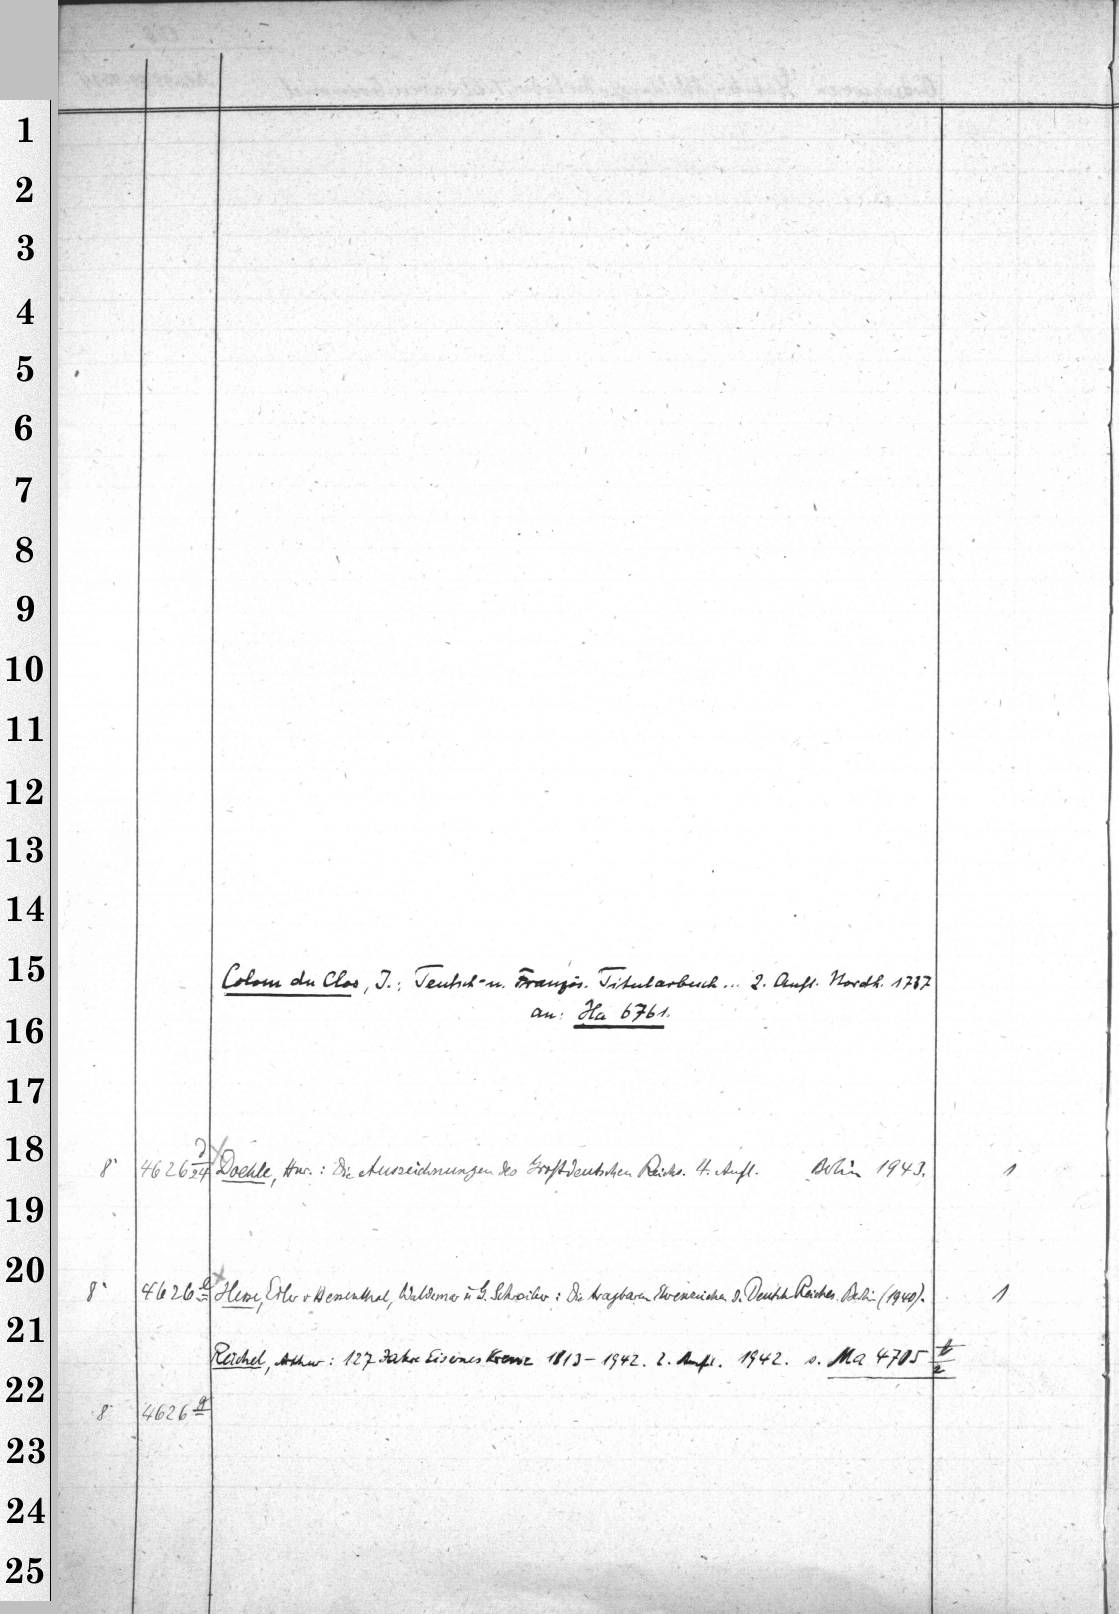 1
2
3
4
5
6
7
8
9
10
11
12
13
14
15
Colom du Clos, J.: Teutsch- u. Französ. Titularbuch... 2. Aufl. Nordh. 1737
an: Ha 6761.
16
17
18
8° 4626 Doehle, Hnr.: Die Auszeichnungen des Großdeutschen Reichs. 4. Aufl. Berlin 1943. 1
19
20
8° 4626 e Hesse, Edler v Hessenthal, Waldemar u G. Schreiber: Die tragbaren Ehrenzeichen d. Deutsch. Reiches. Berlin (1940). 1
21
Reichel, Arthur: 127 Jahre Eisernes Kreuz 1813-1942. 2. Aufl. 1942. s. Ma 4705 b/2
22
8° 4626 g
23
24
25